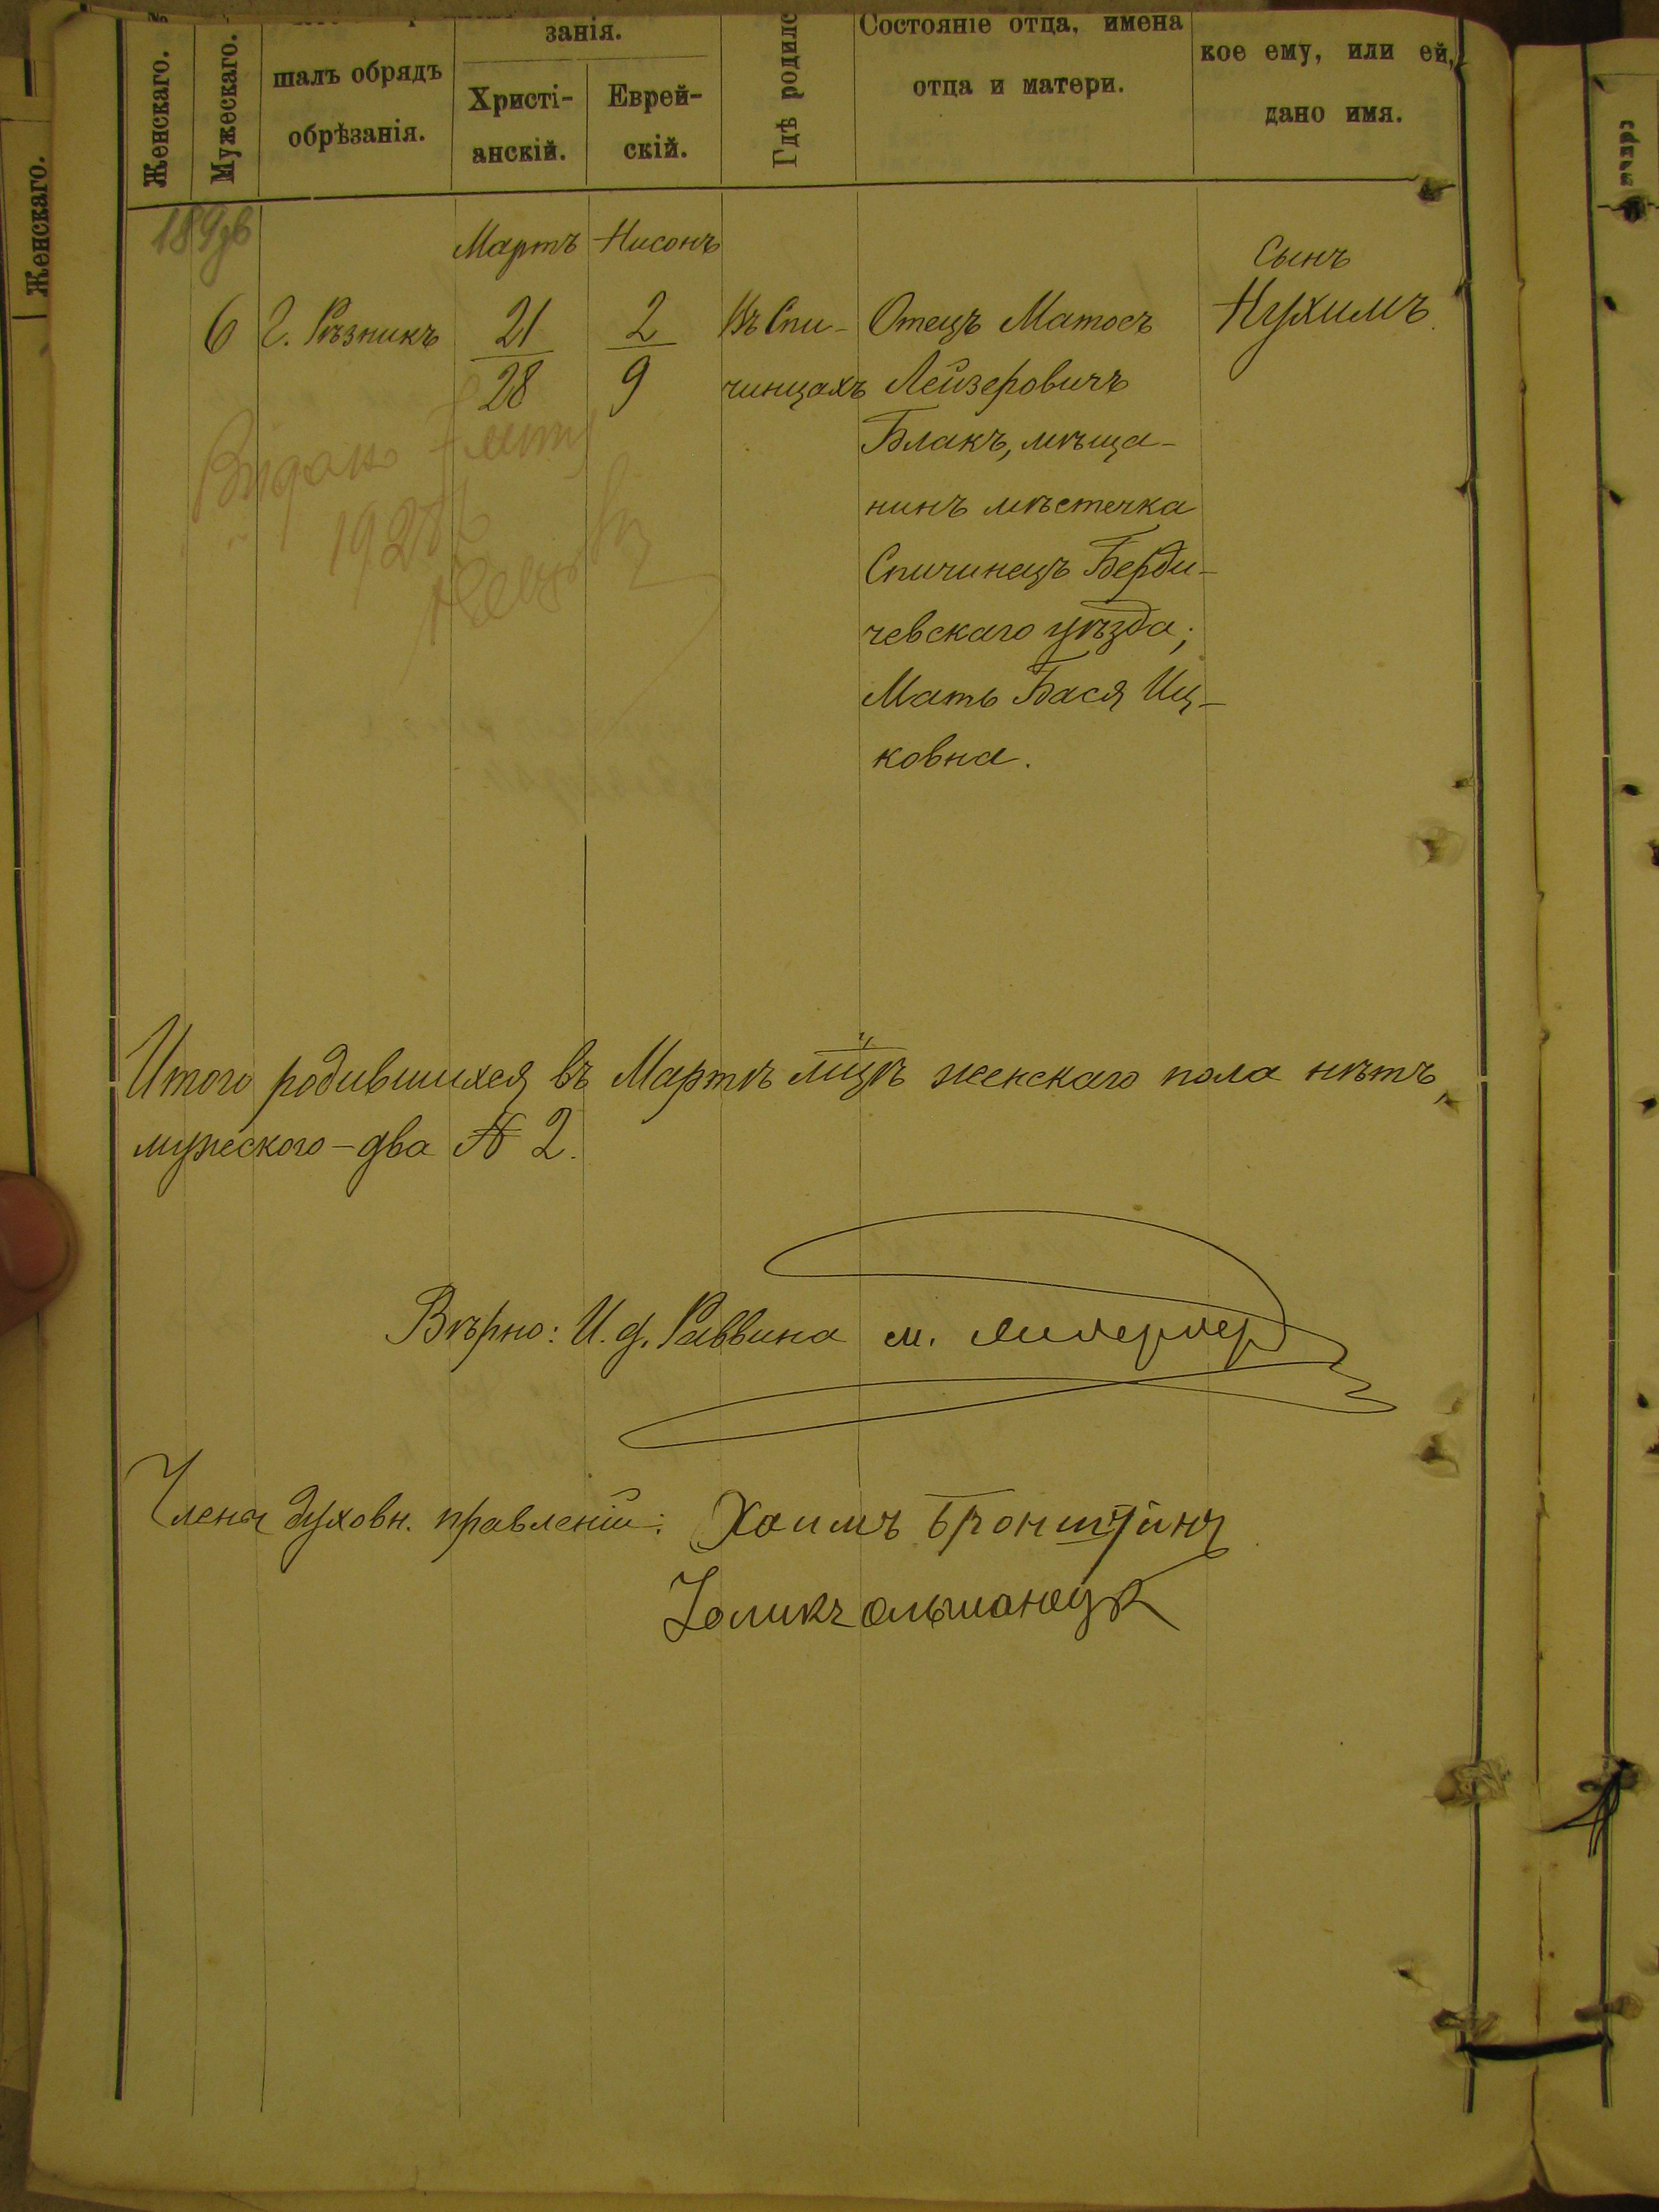 Женскаго.
Женскаго.
Мужескаго.
шалъ обрядъ
обрѣзанія.
занія.
Христі-
анскій.
Еврей-
скій.
Гдѣ родилс
Состояніе отца, имена
отца и матери.
кое ему, или ей,
дано имя.
Мартъ Нисонъ
Сынъ
6 Г. Рѣзникъ 21 2 Въ Спи- Отецъ Матосъ Нухимъ.
28 9 чинцахъ Лейзеровичъ
Блакъ, мѣща-
нинъ мѣстечка
Спичинецъ Берди-
чевскаго уѣзда;
Мать Бася Иц-
ковна.
Итого родившихся въ Мартѣ мцѣ женскаго пола нѣтъ,
мужеского - два № 2.
Вѣрно: И. д. Раввина м.
Члены духовн. правленія: Хаимъ Бронштейнъ